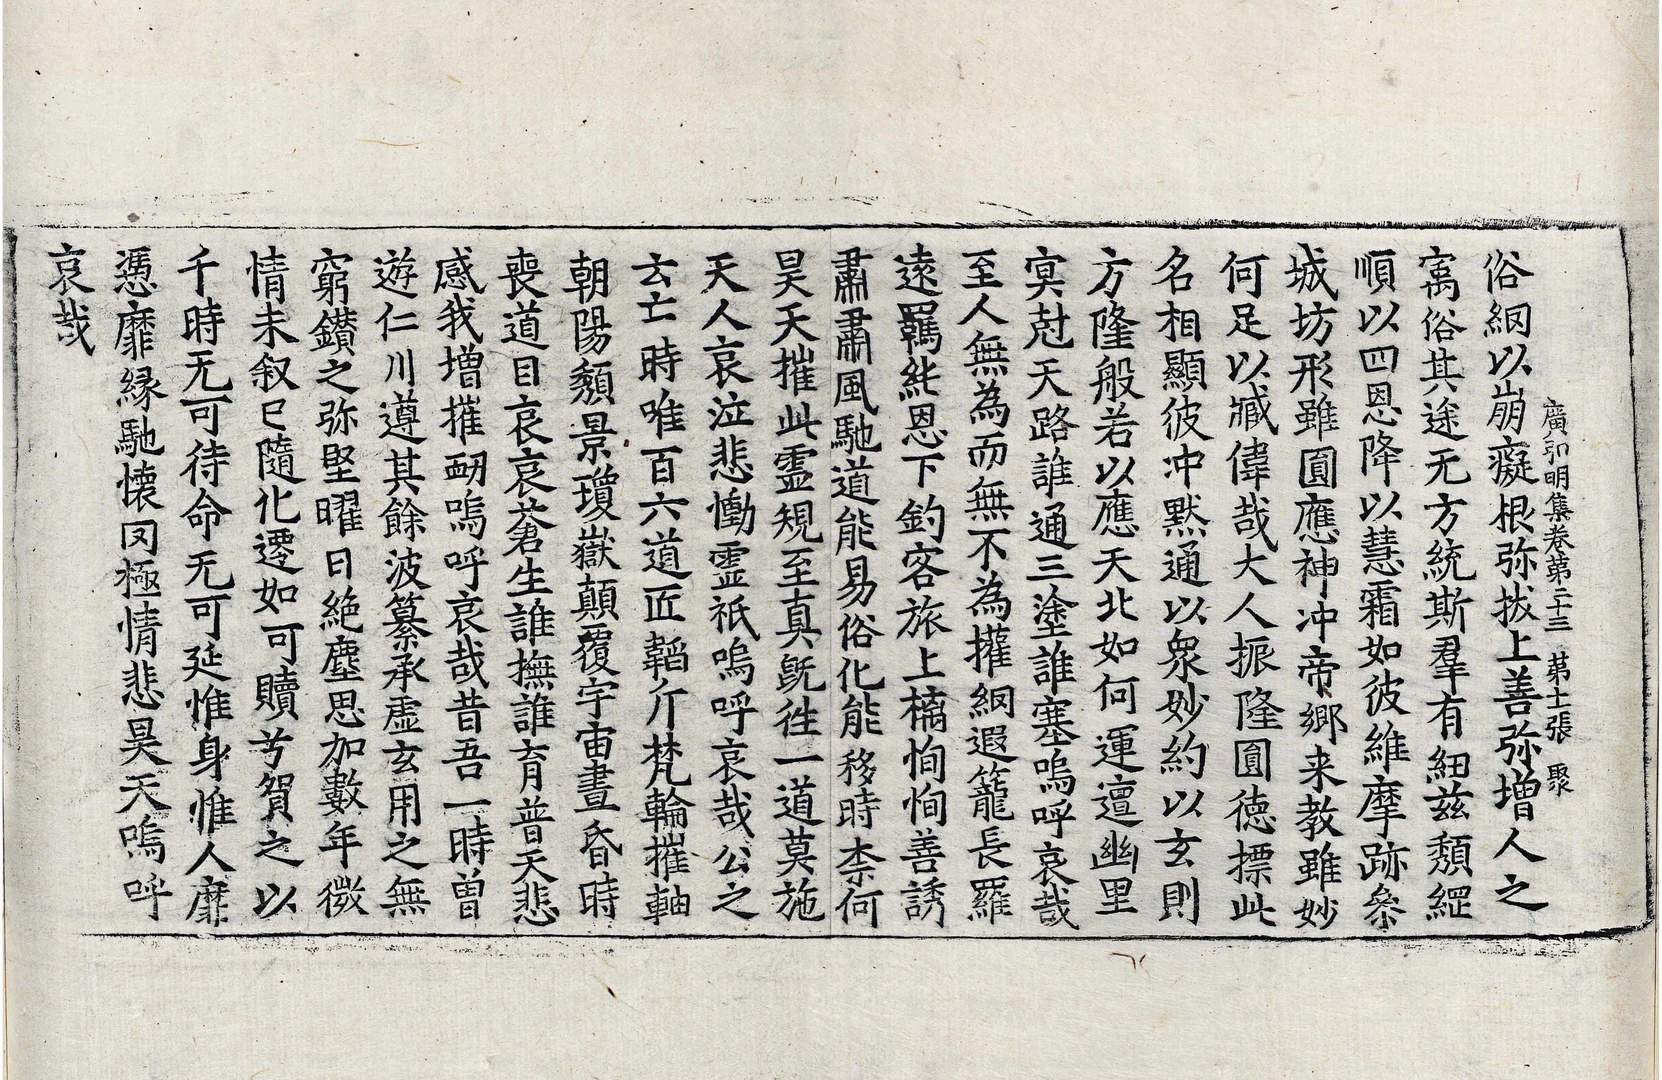 廣弘明集卷第二十三　第十二張　聚
俗網以崩癡根弥拔上善弥增人之
寓俗其途无方統斯羣有紐茲頹綱
順以四恩降以慧霜如彼維摩跡參
城坊形雖圓應神冲帝鄉来教雖妙
何足以臧偉哉大人振隆圓德摽此
名相顯彼冲默通以衆妙約以玄則
方隆般若以應天北如何運邅幽里
冥尅天路誰通三塗誰塞嗚呼哀哉
至人無為而無不為擁網遐籠長羅
遠羈純恩下釣客旅上擒恂恂善誘
肅肅風馳道能易俗化能移時柰何
昊天摧此霊規至真旣徃一道莫施
天人哀泣悲慟霊祇嗚呼哀哉公之
云亡時唯百六道匠韜斤梵輪摧軸
朝陽頹景瓊嶽顛覆宇宙晝昏時
喪道目哀哀蒼生誰撫誰育普天悲
感我增摧衂嗚呼哀哉昔吾一時曽
遊仁川遵其餘波纂承虛玄用之無
窮鑚之弥堅曜日絕塵思加數年微
情未叙已隨化遷如可贖兮貿之以
千時无可待命无可延惟身惟人靡
憑靡緣馳懷罔極情悲昊天嗚呼
哀哉